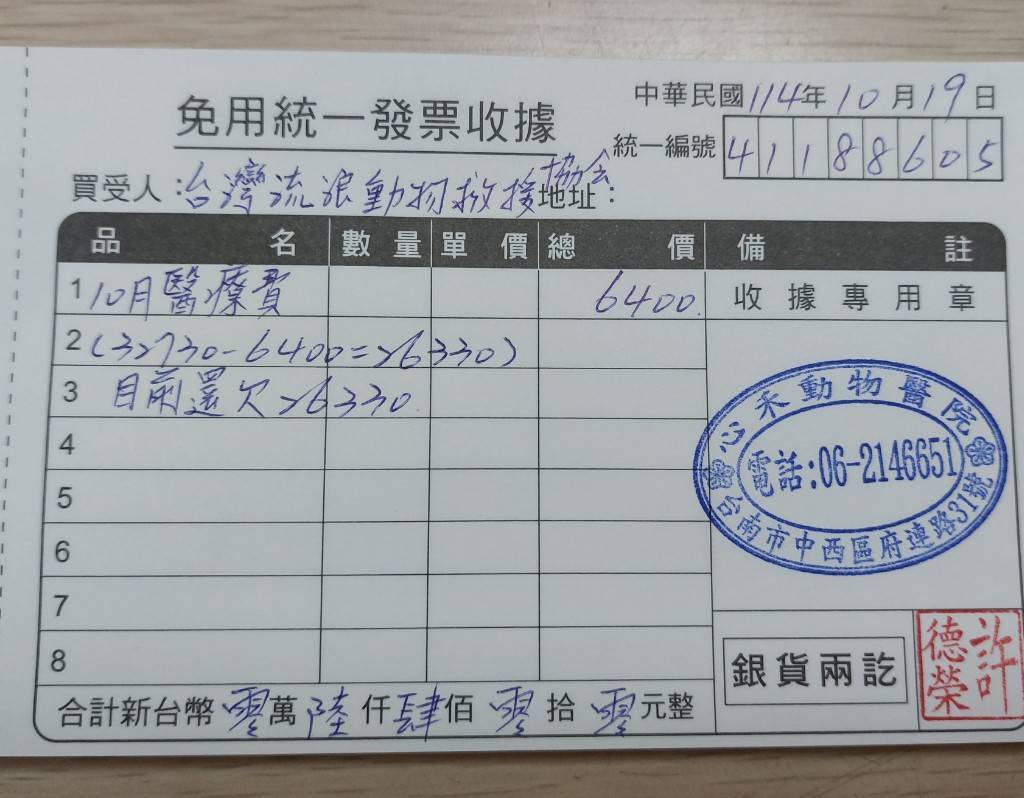 免用統一發票收據
中華民國114年10月19日
統一編號 41188605
買受人：台灣流浪動物救援協会 地址：
品名 數量 單價 總價 備註
1 10月醫療費 6400. 收據專用章
2 (32730-6400=26330)
3 目前還欠26330.
4
5
6
7
8
心禾動物醫院
電話:06-2146651
台南市中西區府連路31號
銀貨兩訖
許德榮
合計新台幣零萬陸仟肆佰零拾零元整